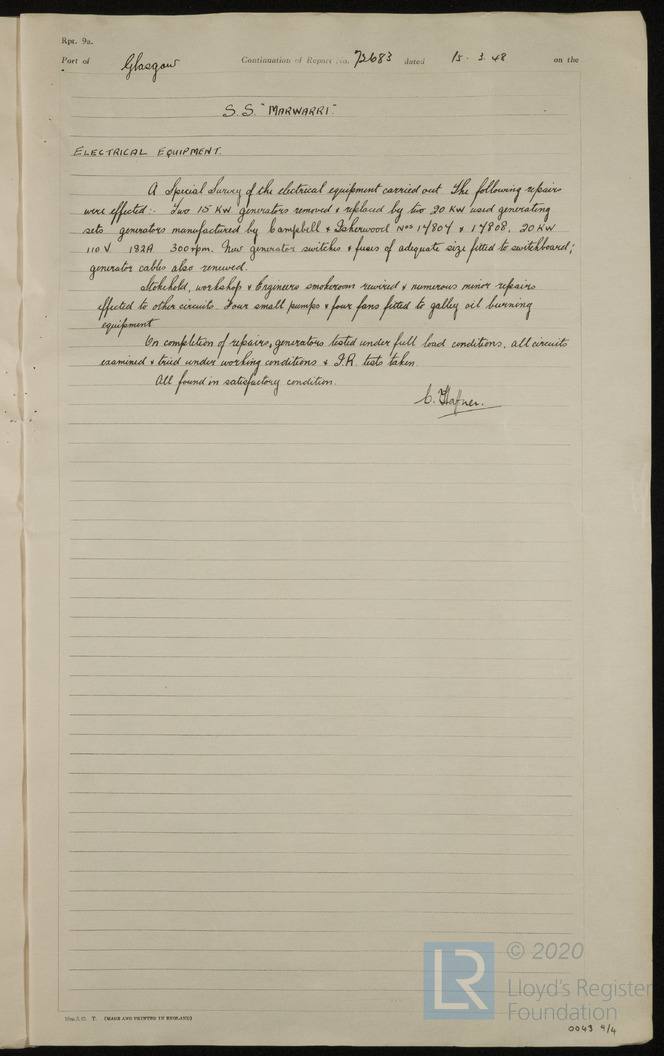 Rpt. 9a.
Port of Glasgow Continuation of Report No. 72683 dated 15. 3. 48 on the
S.S. "MARWARRI"
ELECTRICAL EQUIPMENT.
A Special Survey of the electrical equipment carried out The following repairs
were effected:- Two 15 KW generators removed & replaced by two 20 KW used generating
sets generators manufactured by Campbell & Isherwood Nos 17807 & 17808, 20 KW
110 V 182A 300 rpm. New generator switches & fuses of adequate size fitted to switchboard;
generator cables also renewed.
Stokehold, workshop & Engineers smokeroom rewired & numerous minor repairs
effected to other circuits. Four small pumps & four fans fitted to galley oil burning
equipment
On completion of repairs, generators tested under full load conditions, all circuits
examined & tried under working conditions & I.R. tests taken.
All found in satisfactory condition.
C. Hafner.
T. (MADE AND PRINTED IN ENGLAND)
LR
© 2020
Lloyd's Register
Foundation
0043 4/4